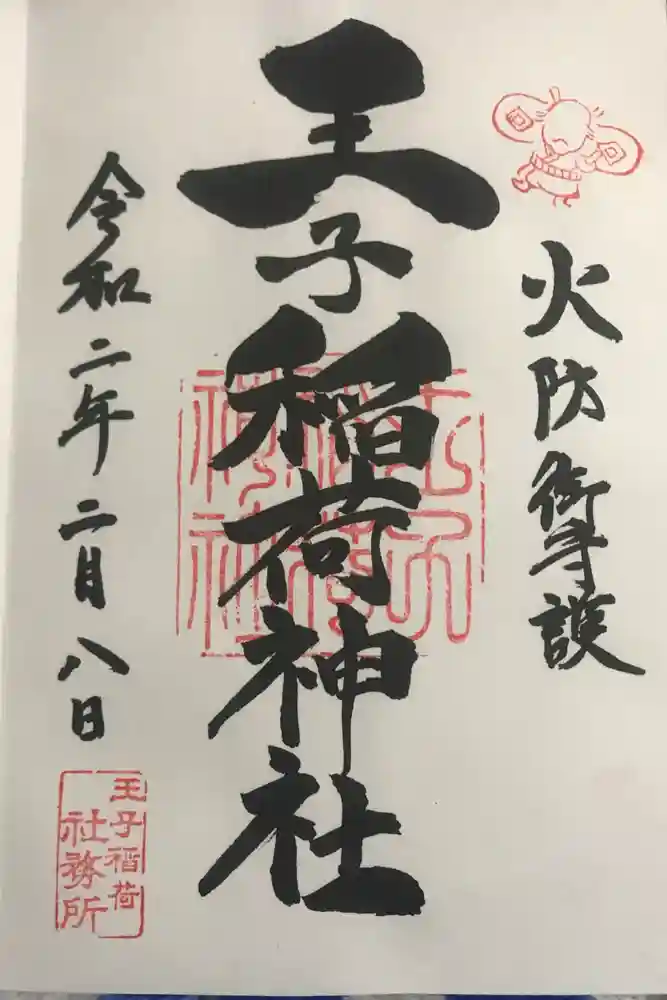 火防御守護
王子稲荷神社
令和二年二月八日
王子稲荷
社務所
王子
稲荷
神社